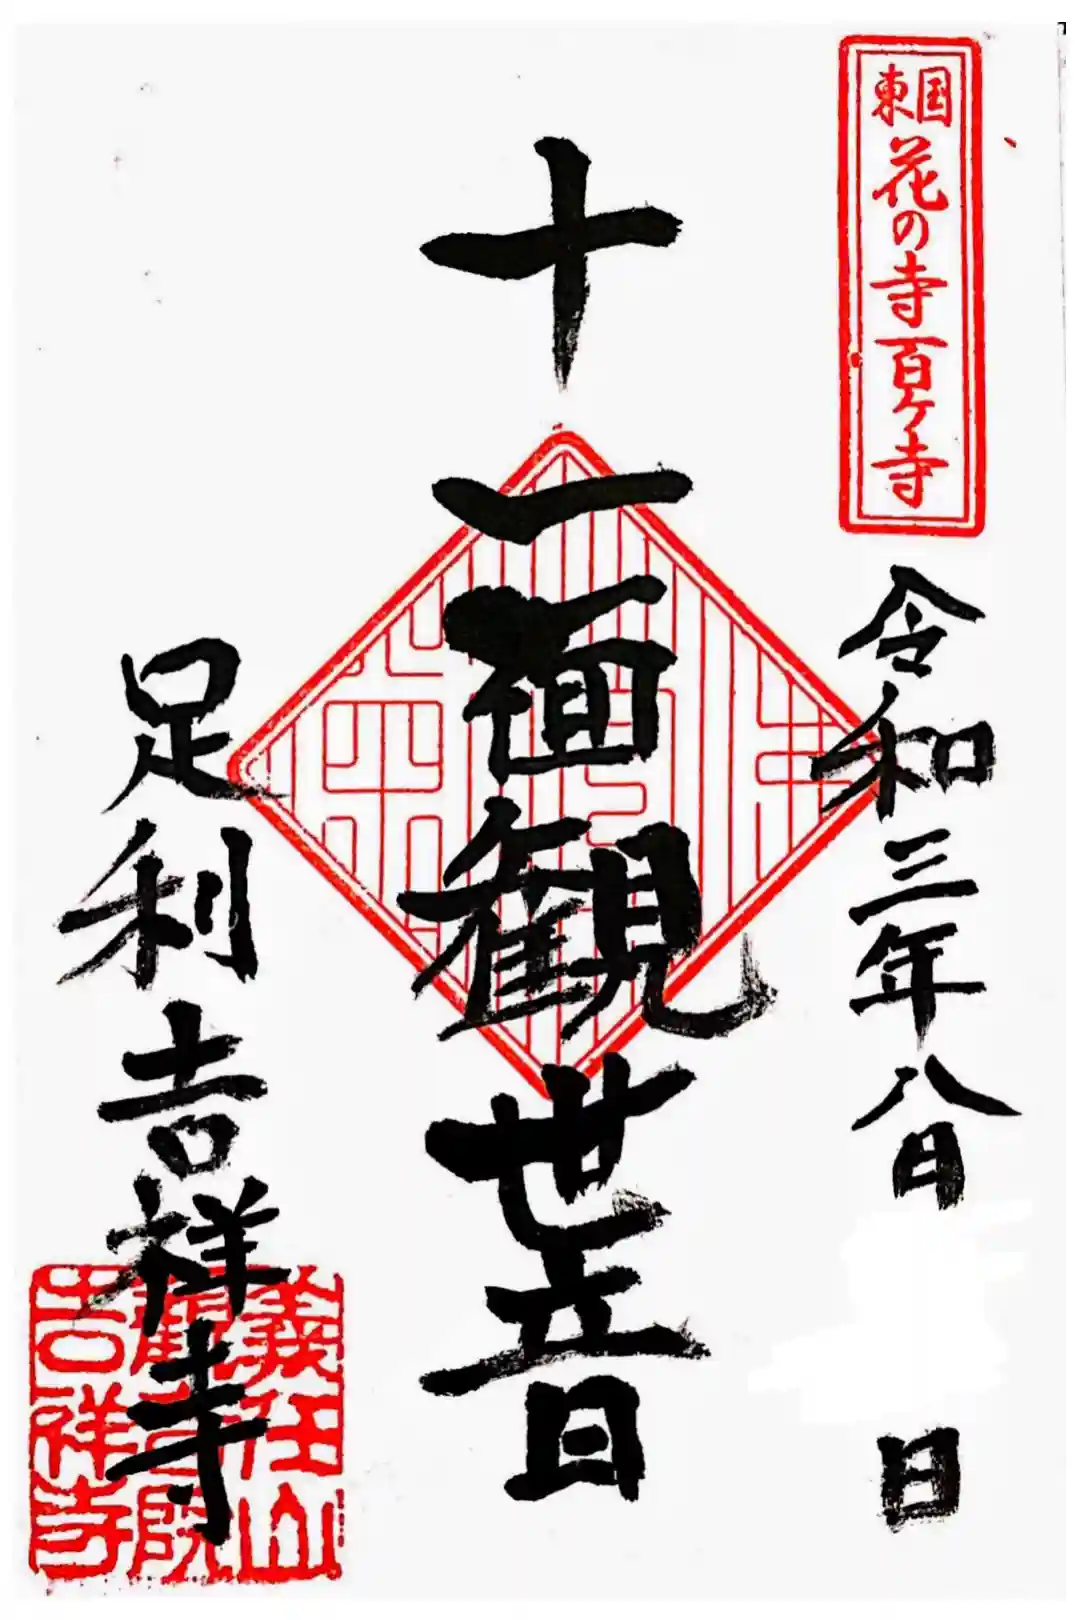 東国花の寺百ヶ寺
令和三年八月
日
十一面観世音
足利吉祥寺
義任山
観音院
吉祥寺